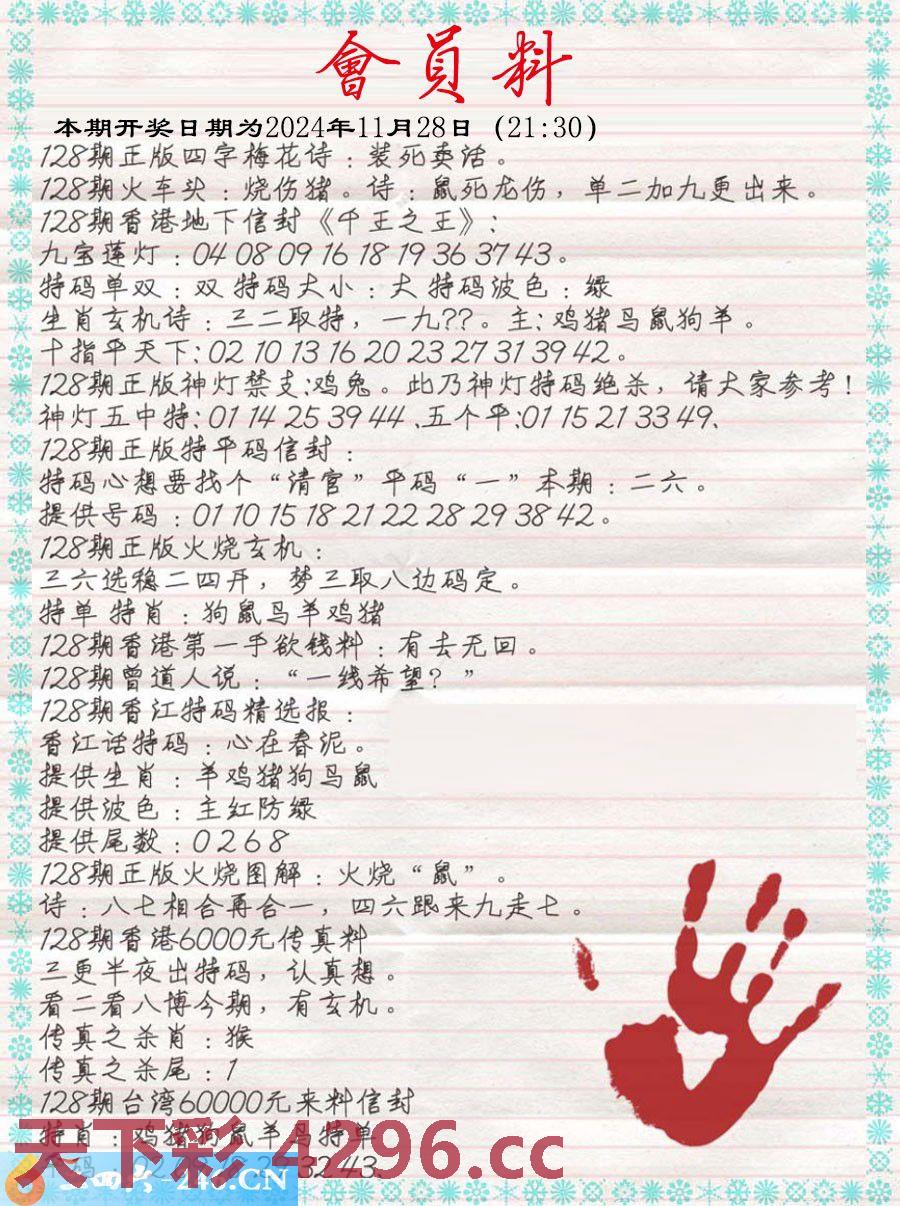 會員料
本期开奖日期为2024年11月28日（21:30）
128期正版四字梅花诗：装死卖活。
128期火车头：烧伤猪。诗：鼠死龙伤，单二加九更出来。
128期香港地下信封《千王之王》：
九宝莲灯：04 08 09 16 18 19 36 37 43。
特码单双：双 特码大小：大 特码波色：绿
生肖玄机诗：三二取特，一九??。主：鸡猪马鼠狗羊。
十指平天下：02 10 13 16 20 23 27 31 39 42。
128期正版神灯禁支:鸡兔。此乃神灯特码绝杀，请大家参考！
神灯五中特：01 14 25 39 44、五个平:01 15 21 33 49、
128期正版特平码信封：
特码心想要找个“清官”平码“一”本期：二六。
提供号码：01 10 15 18 21 22 28 29 38 42。
128期正版火烧玄机：
三六选稳二四开，梦三取八边码定。
特单 特肖：狗鼠马羊鸡猪
128期香港第一手欲钱料：有去无回。
128期曾道人说：“一线希望？”
128期香江特码精选报：
香江话特码：心在春泥。
提供生肖：羊鸡猪狗马鼠
提供波色：主红防绿
提供尾数：0 2 6 8
128期正版火烧图解：火烧“鼠”。
诗：八七相合再合一，四六跟来九走七。
128期香港6000元传真料
三更半夜出特码，认真想。
看二看八博今期，有玄机。
传真之杀肖：猴
传真之杀尾：1
128期台湾60000元来料信封
特肖：鸡猪狗鼠羊马特单
天下彩4296.cc
32 43、
246.CN